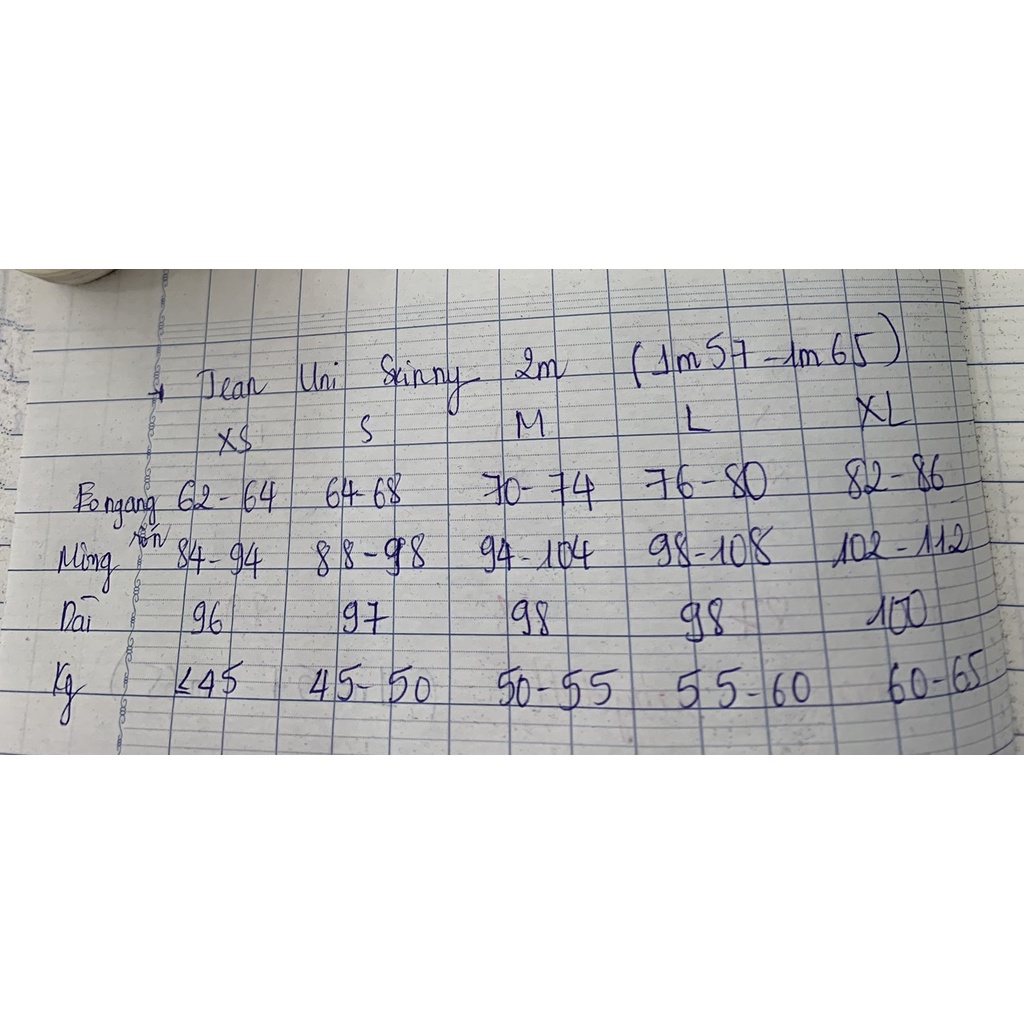 → Jean Uni Skinny 2m (1m57 - 1m65)
XS S M L XL
Eo ngang rốn 62 - 64 64-68 70 - 74 76 - 80 82 - 86
Mông 84 - 94 88 - 98 94 - 104 98 - 108 102 - 112
Dài 96 97 98 98 100
Kg ≤45 45 - 50 50 - 55 55 - 60 60 - 65